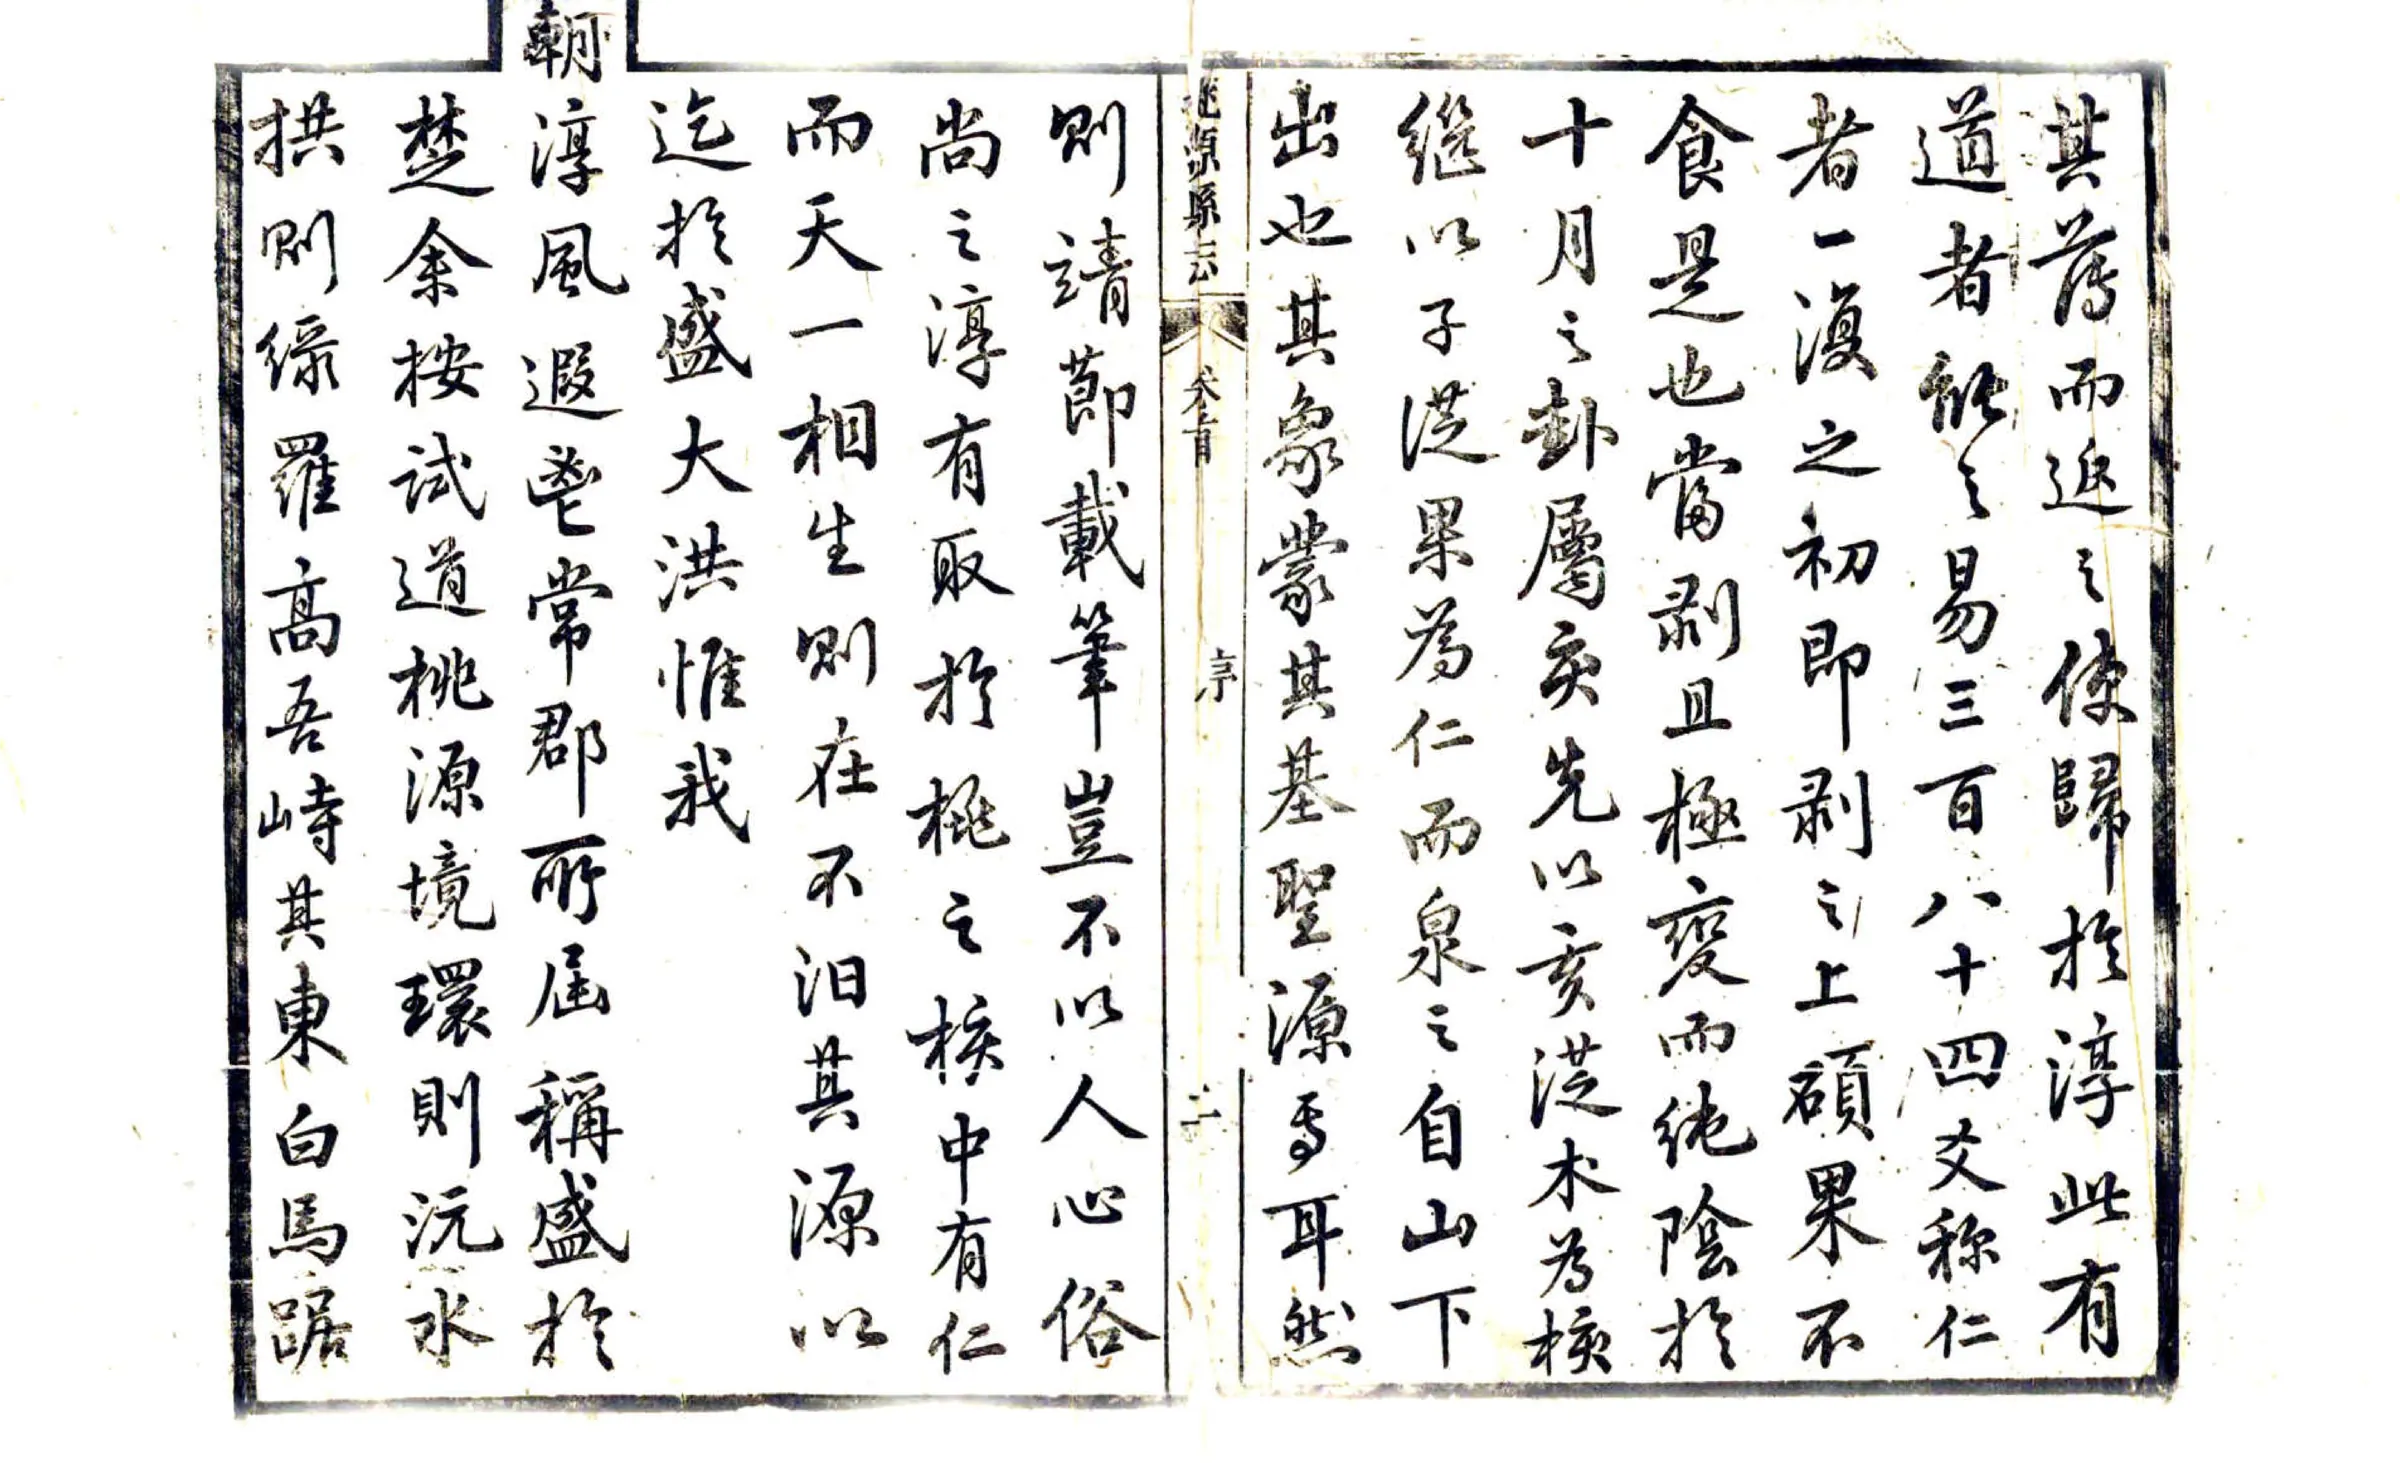 其薄而返之使歸於淳此有
道者能之易三百八十四爻称仁
者一復之初即剥之上碩果不
食是也當剥且極變而純陰於
十月之卦屬亥先以亥從木為核
繼以子從果為仁而泉之自山下
出也其象蒙其基聖源焉耳然
桃源縣志 卷之首 序 二
則靖節載筆豈不以人心俗
尚之淳有取於桃之核中有仁
而天一相生則在不汩其源以
迄於盛大洪惟我
朝淳風遐鬯常郡所屆稱盛於
楚余按試道桃源境環則沅水
拱則緑羅高吾峙其東白馬踞